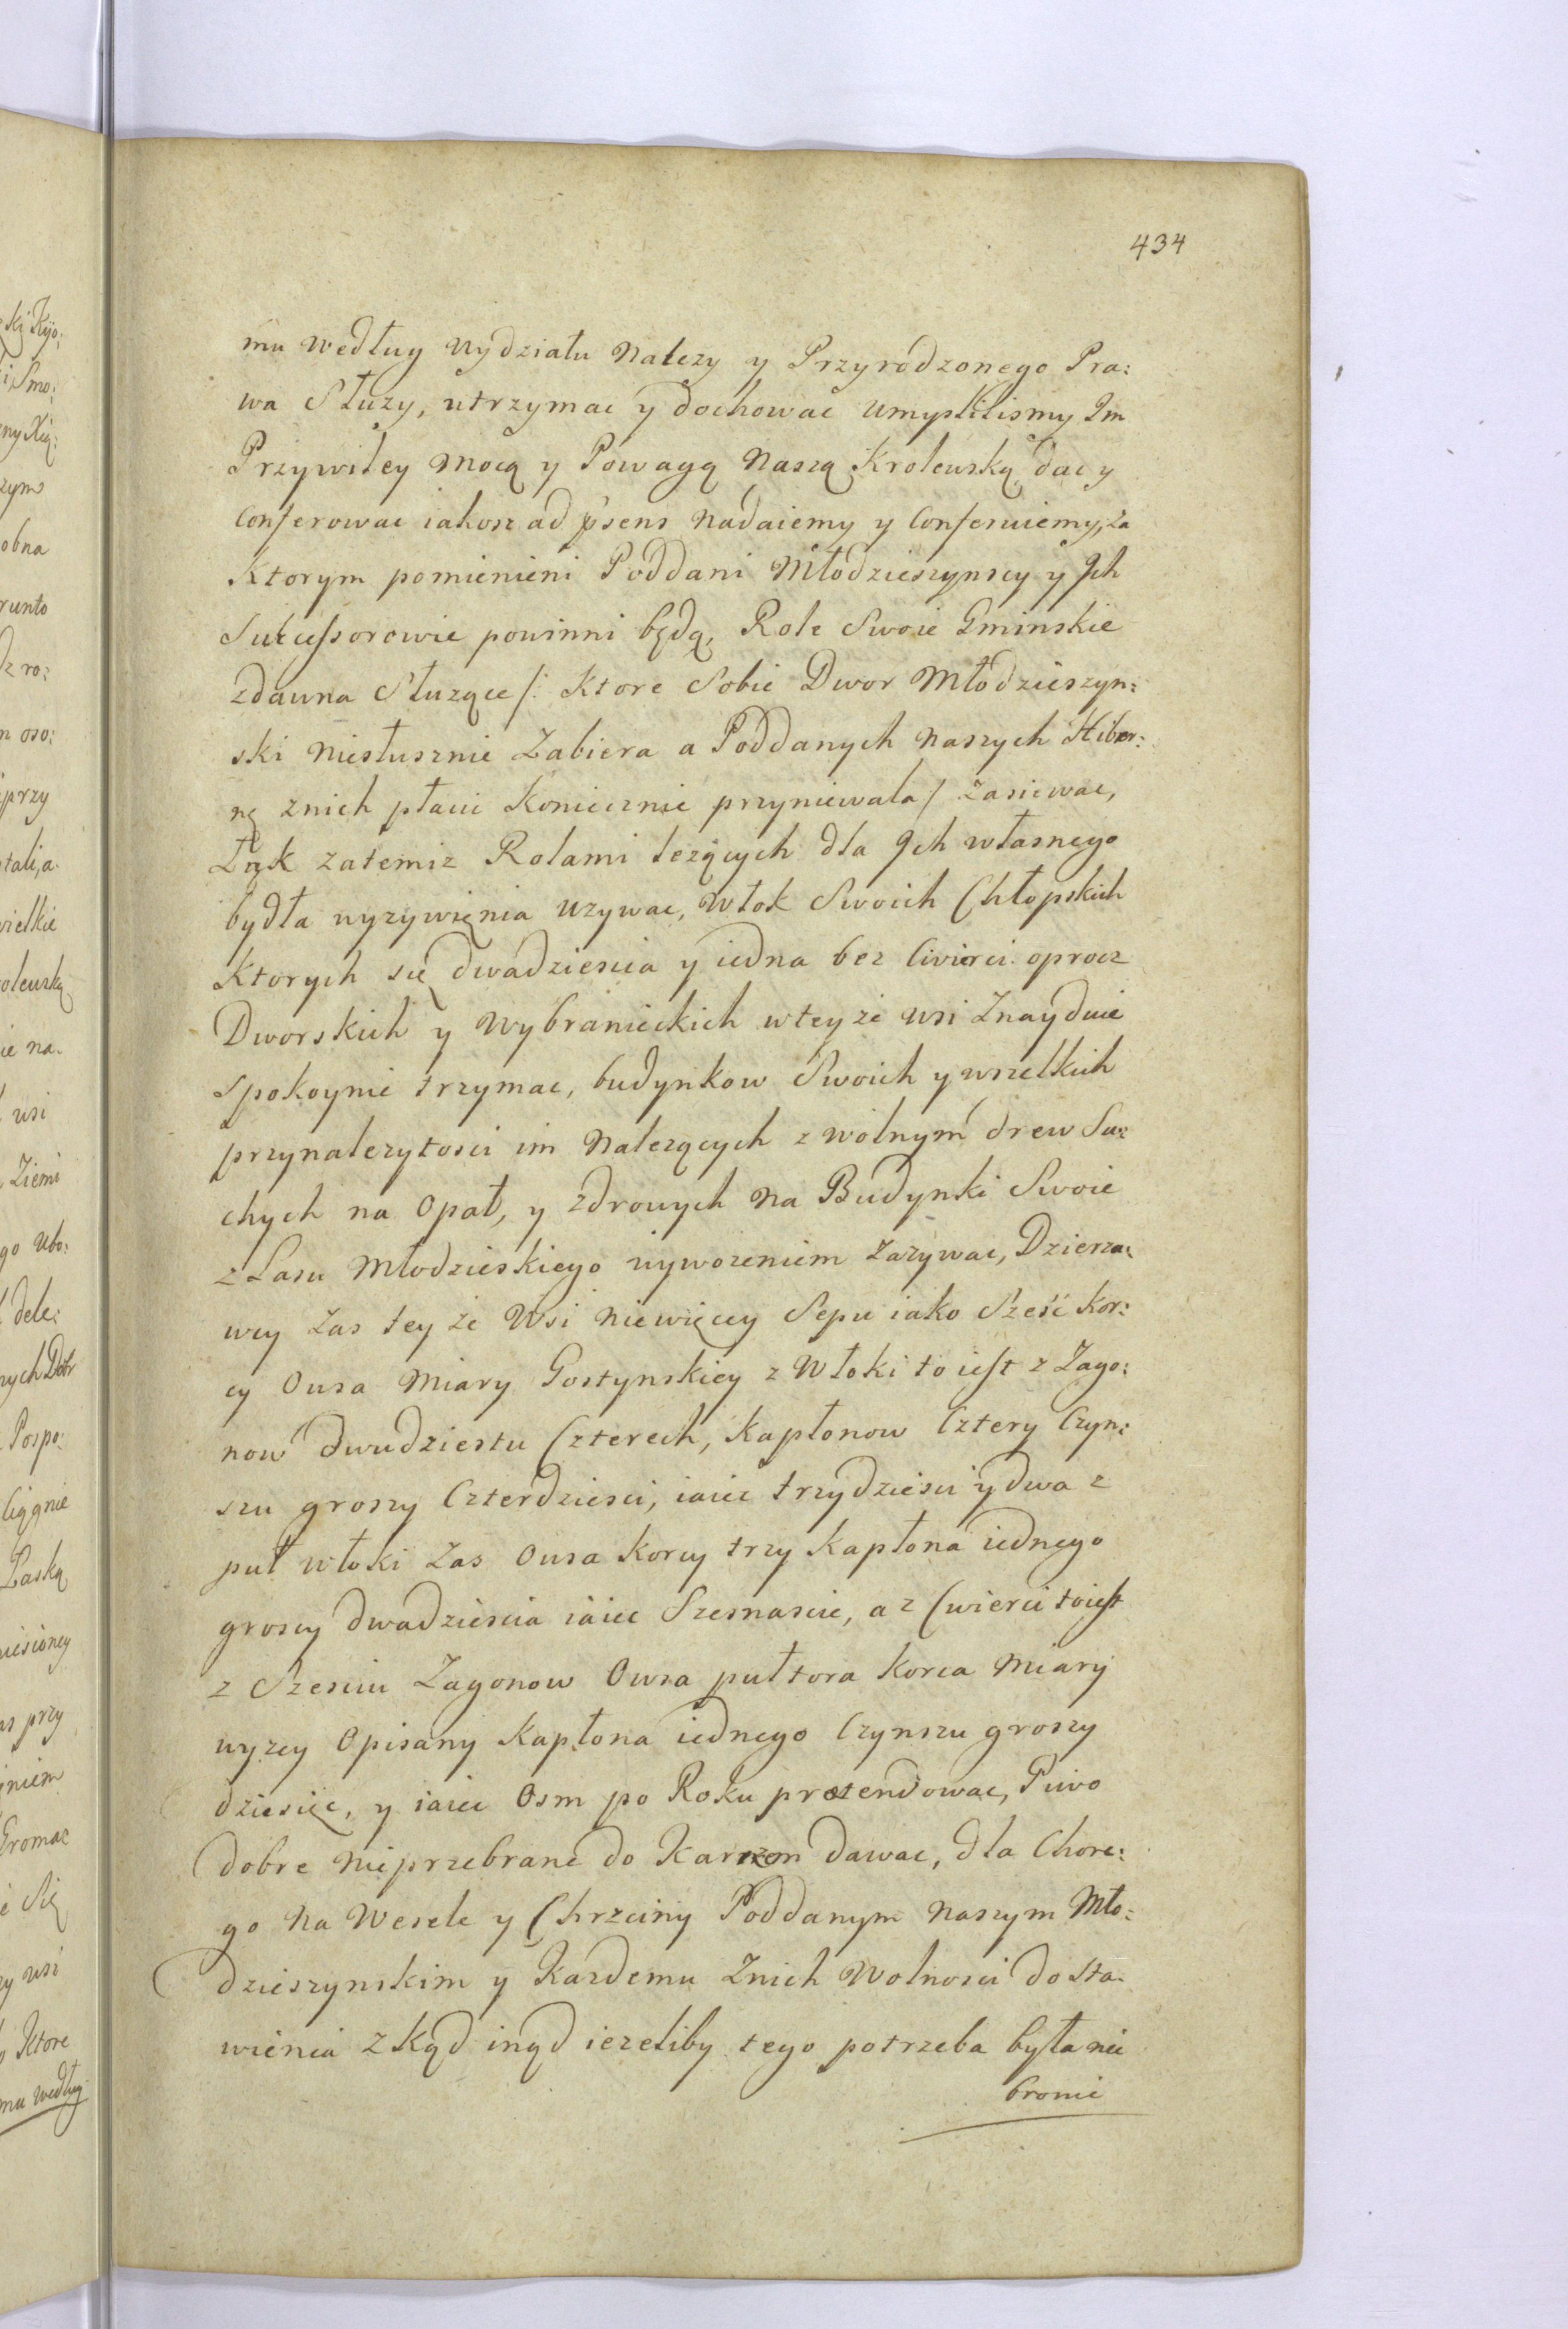 434
mu według wydziału należy y Przyrodzonego Pra:
wa Służy, utrzymac y dochować umyslilismy Im
Przywiley mocą y Powagą Naszą Krolewską dac y
Conferowac iakosz ad p'sens nadaiemy y Conferuiemy, za
Ktorym pomienieni Poddani Młodzieszynscy y Ich
Sukcessorowie powinni będą, Role Swoie Gminskie
zdawna Służące /: Ktore Sobie Dwor Młodzieszyn:
ski niesłusznie Zabiera a Poddanych naszych Hiber:
nę znich płacic Koniecznie przyniewala / zasiewac,
Łąk zatemiz Rolami leżących dla Ich własnego
bydła wyzywięnia uzywac, Włok Swoich Chłopskich
Ktorych się dwadziescia y iedna bez Cwierci oprocz
Dworskich y Wybranieckich wteyże wsi Znayduie
Spokoynie trzymac, budynkow Swoich y wszelkich
przynalezytosci im Nalezących z wolnym drew Su:
chych na Opał, y zdrowych na Budynki Swoie
z Lasu Młodzieskiego wywozeniem Zazywac, Dzierza:
wcy Zas tey że Wsi niewięcey Sepu iako Sześć kor:
cy Owsa Miary Gostynskiey z Włoki to iest z Zago:
now dwudziestu Czterech, Kapłonow Cztery Czyn:
szu groszy Czterdziesci, iaiec trzydziesci y dwa z
puł włoki Zas Owsa korcy trzy Kapłona iednego
groszy dwadziescia iaiec Szesnascie, a z Cwierci toiest
z Szesciu Zagonow Owsa pułtora korca Miary
wyzey Opisany Kapłona iednego Czynszu groszy
dziesięc, y iaiec Osm po Roku pretendowac, Piwo
dobre nieprzebrane do Karczem dawac, dla Chore:
go na Wesele y Chrzciny Poddanym naszym Mło:
dzieszynskim y Kazdemu Znich Wolnosci dosta-
wienia z kąd inąd iezeliby tego potrzeba była nie
bronic